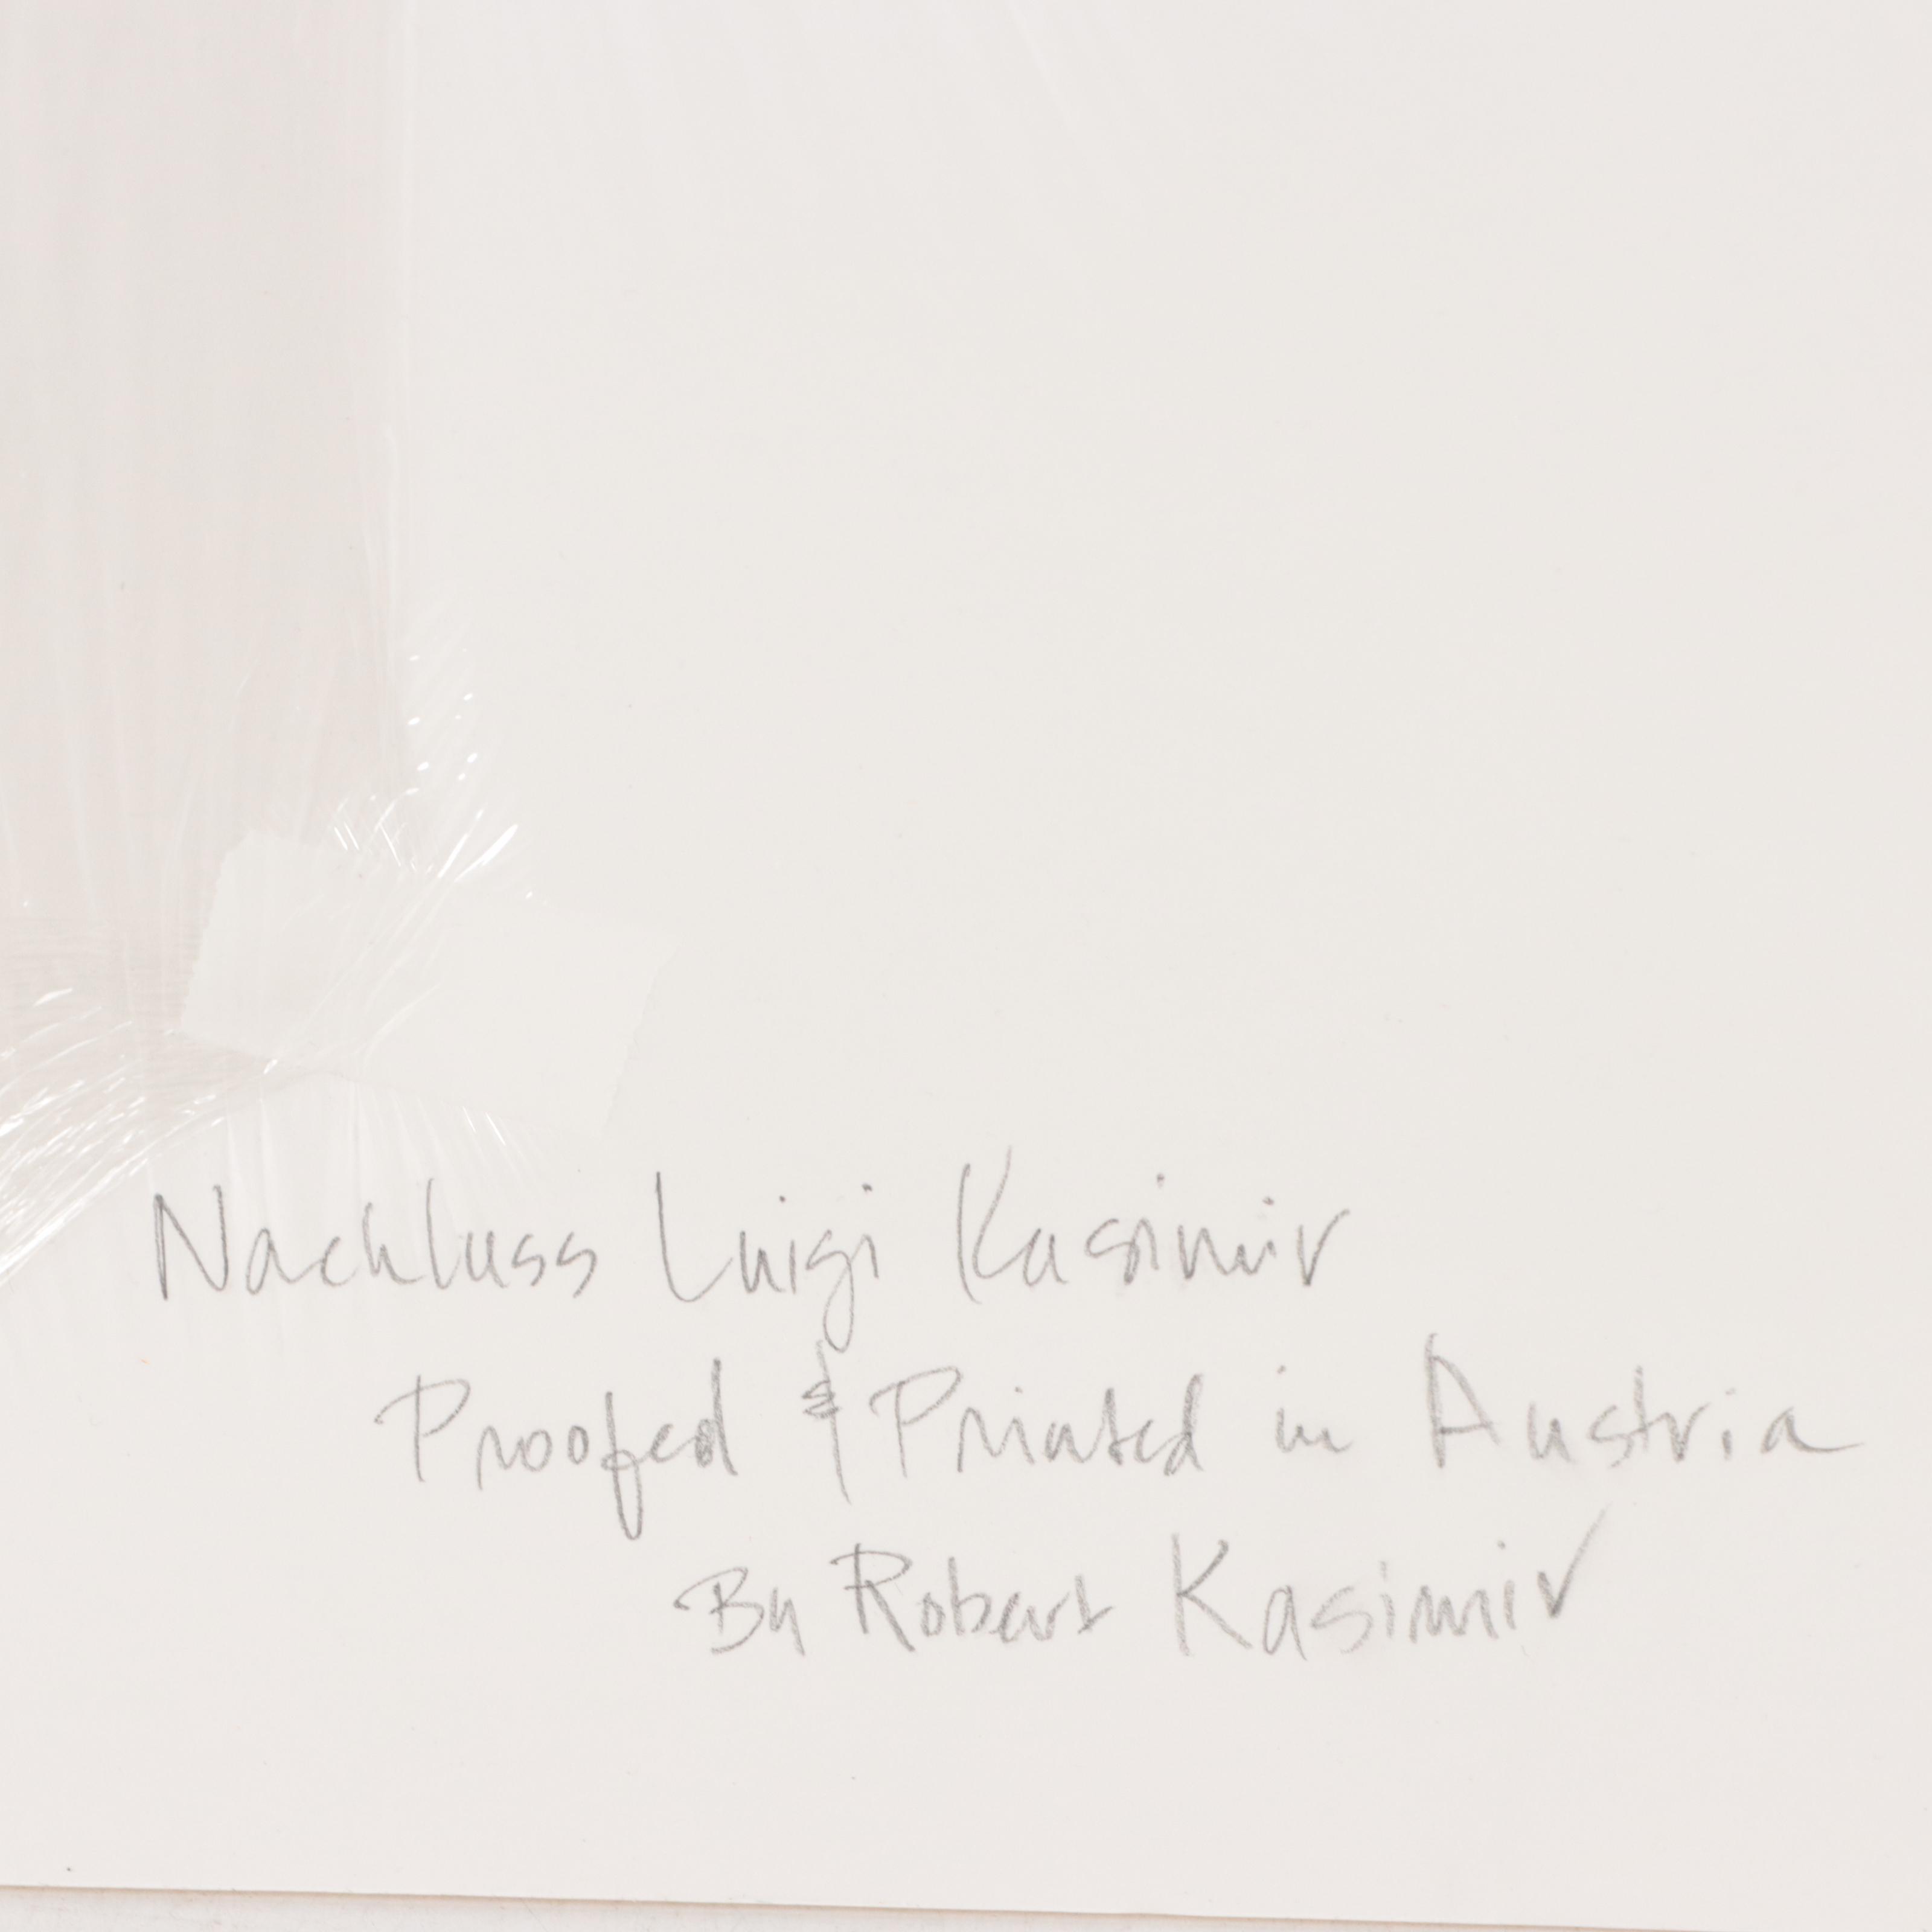 Nachluss Luigi Kasimir
Proofed & Printed in Austria
By Robert Kasimir